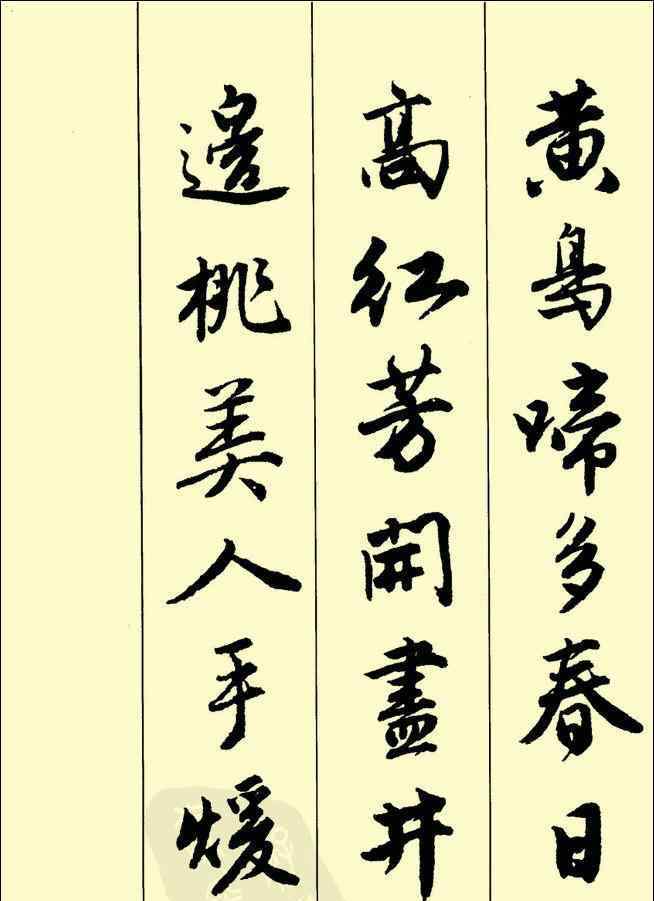 黃鳥啼多春日
高紅芳開盡井
邊桃美人手煖